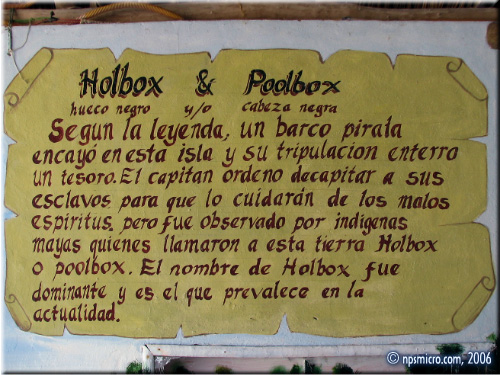 Holbox & Poolbox
hueco negro y/o cabeza negra
Segun la leyenda, un barco pirata
encayó en esta isla y su tripulacion enterro
un tesoro. El capitan ordeno decapitar a sus
esclavos para que lo cuidarán de los malos
espiritus. pero fue observado por indigenas
mayas quienes llamaron a esta tierra Holbox
o poolbox. El nombre de Holbox fue
dominante y es el que prevalece en la
actualidad.
© npsmicro.com, 2006